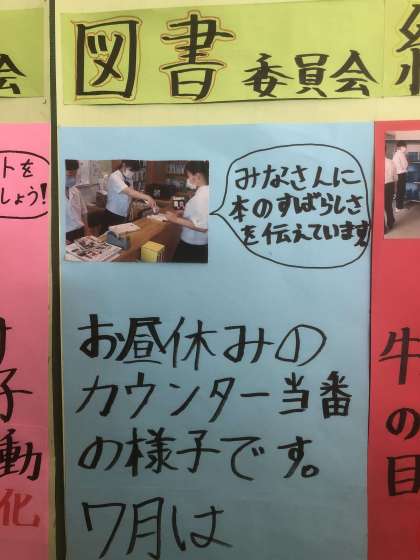 図書委員会
みなさんに
本のすばらしさ
を伝えています
お昼休みの
カウンター当番
の様子です。
7月は
会
トを
しょう!
子
動
化
牛
の
目